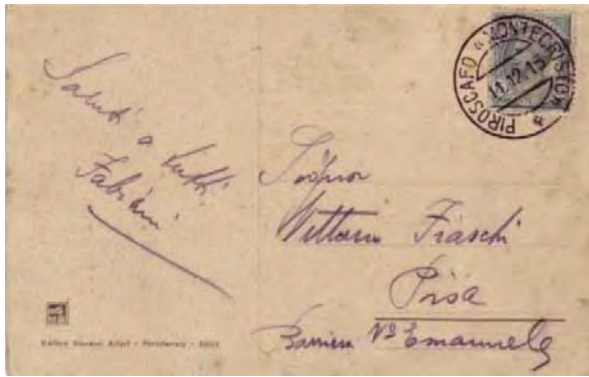 Saluti a tutti
Fabiani
PIROSCAFO "MONTECRISTO"
11.12.13
Signor
Vittorio Fiaschi
Pisa
Barriera V° Emanuele
Editore Giovanni